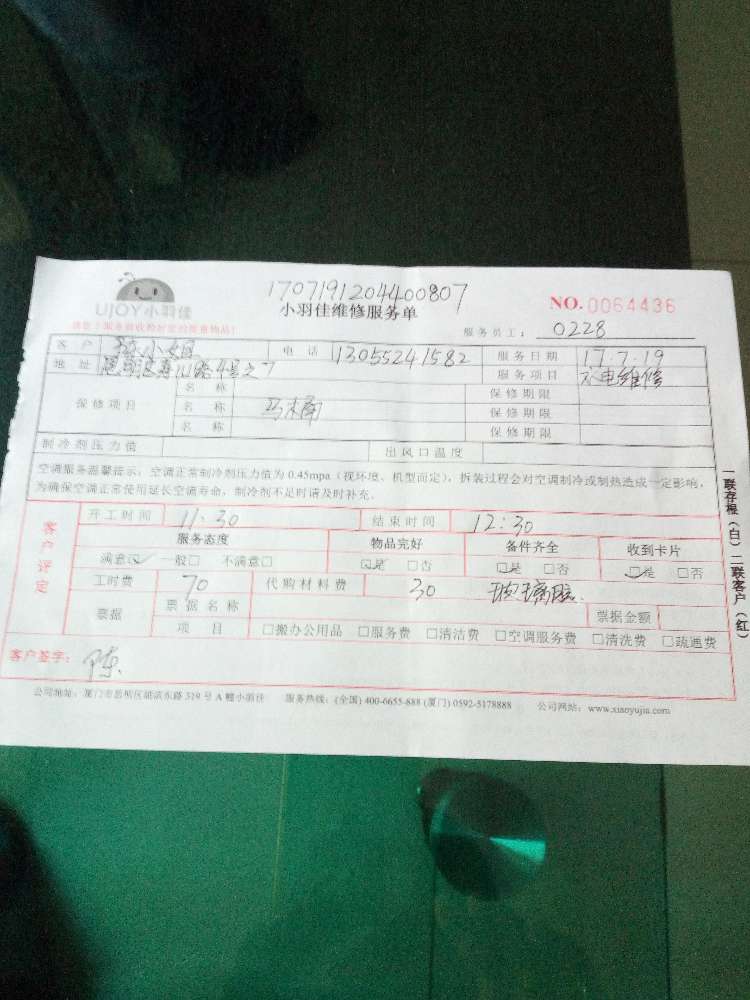 1707191204400807
UJOY小羽佳
小羽佳维修服务单
NO.0064436
服务员工: 0228
客户 小姐 电话 13055241582 服务日期 17.7.19
地址 服务项目 水电维修
保修项目 名称 保修期限
名称 马木甬 保修期限
名称 保修期限
制冷剂压力值 出风口温度
空调服务温馨提示:空调正常制冷剂压力值为 0.45mpa(视环境、机型而定),拆装过程会对空调制冷或制热造成一定影响,
为确保空调正常使用延长空调寿命,制冷剂不足时请及时补充。
开工时间 11:30 结束时间 12:30
客户评定
服务态度 物品完好 备件齐全 收到卡片
满意☑ 一般□ 不满意□ ☑是 □否 ☑是 □否 ☑是 □否
工时费 70 代购材料费 30 玻璃胶
票据 票据名称 票据金额
项目 □搬办公用品 □服务费 □清洁费 □空调服务费 □清洗费 □疏通费
客户签字: 陈
公司地址:厦门市思明区湖滨东路 319 号 A 幢小羽佳 服务热线:(全国) 400-6655-888 (厦门) 0592-5178888 公司网站:www.xiaoyujia.com
一联存根(白)二联客户(红)